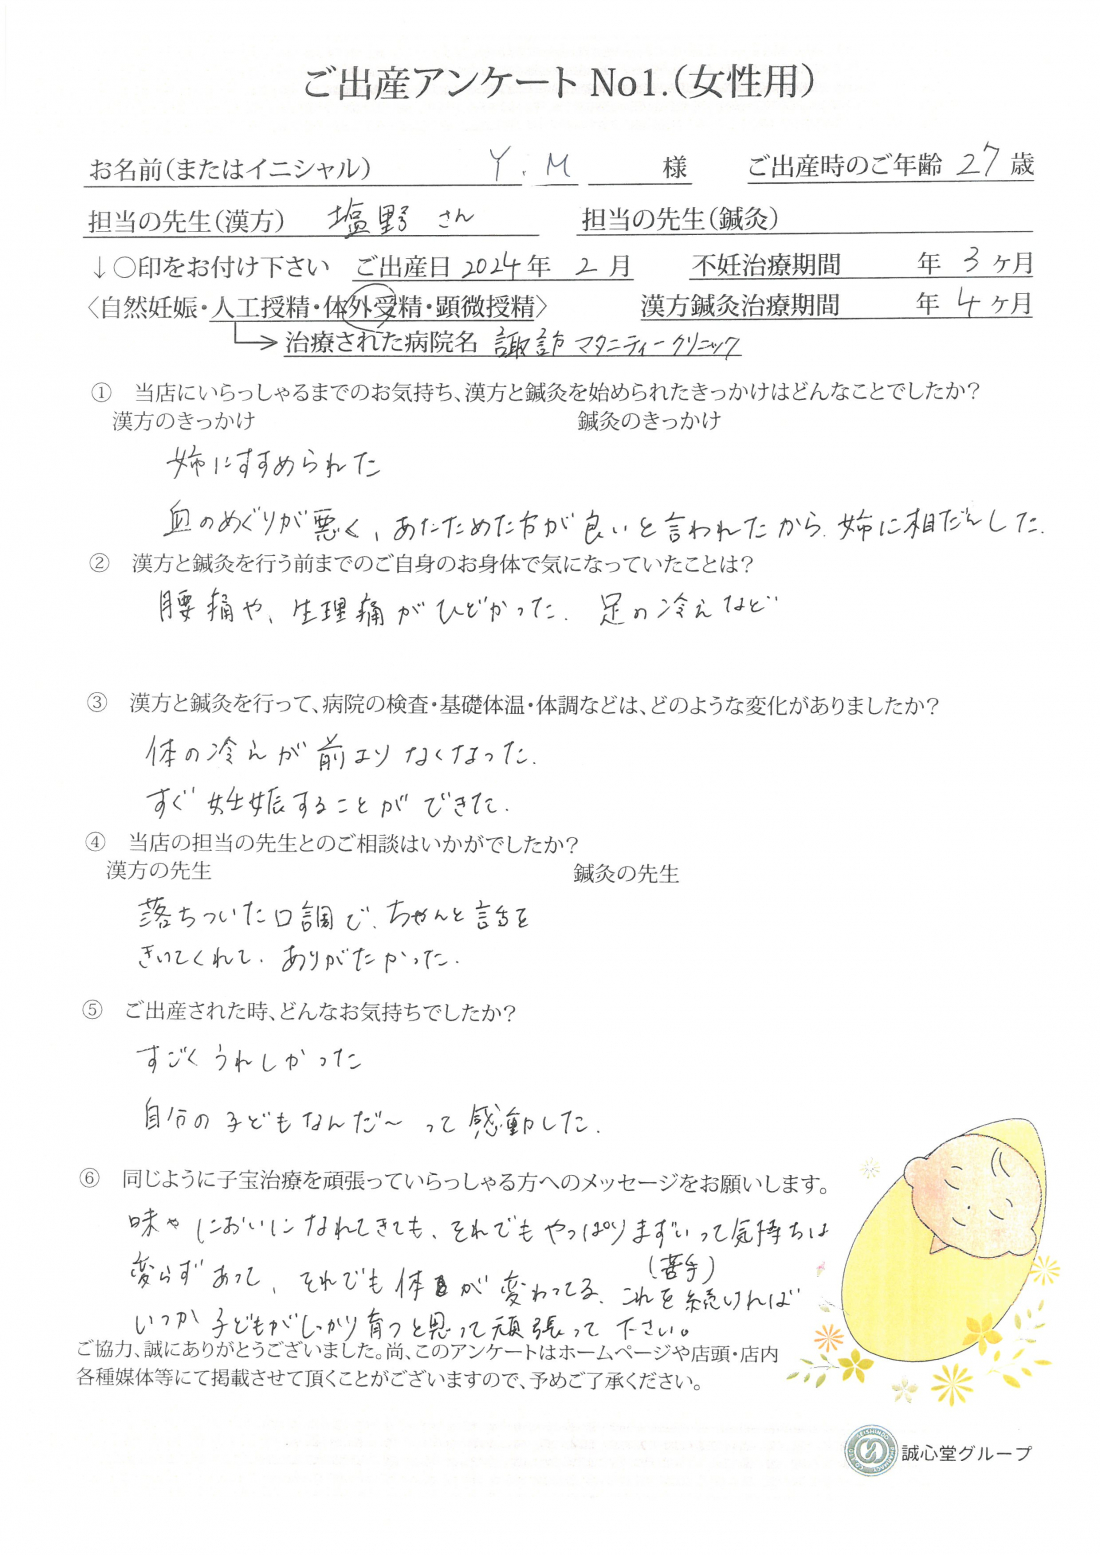 ご出産アンケート No1.(女性用)
お名前(またはイニシャル) Y.M 様 ご出産時のご年齢 27 歳
担当の先生(漢方) 塩野さん 担当の先生(鍼灸)
↓〇印をお付け下さい ご出産日 2024年 2月 不妊治療期間 年 3ヶ月
〈自然妊娠・人工授精・体外受精・顕微授精〉 漢方鍼灸治療期間 年 4ヶ月
治療された病院名 諏訪マタニティークリニック
① 当店にいらっしゃるまでのお気持ち、漢方と鍼灸を始められたきっかけはどんなことでしたか?
漢方のきっかけ 鍼灸のきっかけ
姉にすすめられた
血のめぐりが悪く、あたためた方が良いと言われたから、姉に相だんした.
② 漢方と鍼灸を行う前までのご自身のお身体で気になっていたことは?
腰痛や、生理痛がひどかった. 足の冷えなど
③ 漢方と鍼灸を行って、病院の検査・基礎体温・体調などは、どのような変化がありましたか?
体の冷えが前よりなくなった.
すぐ妊娠することができた.
④ 当店の担当の先生とのご相談はいかがでしたか?
漢方の先生 鍼灸の先生
落ちついた口調で、ちゃんと話を
きいてくれて、ありがたかった.
⑤ ご出産された時、どんなお気持ちでしたか?
すごくうれしかった
自分の子どもなんだ〜って感動した.
⑥ 同じように子宝治療を頑張っていらっしゃる方へのメッセージをお願いします。
味やにおいになれてきても、それでもやっぱりまずいって気持ちは
(苦手)
変らずあって、それでも体が変わってる、これを続ければ
いつか子どもがしっかり育つと思って頑張って下さい。
ご協力、誠にありがとうございました。尚、このアンケートはホームページや店頭・店内
各種媒体等にて掲載させて頂くことがございますので、予めご了承ください。
誠心堂グループ